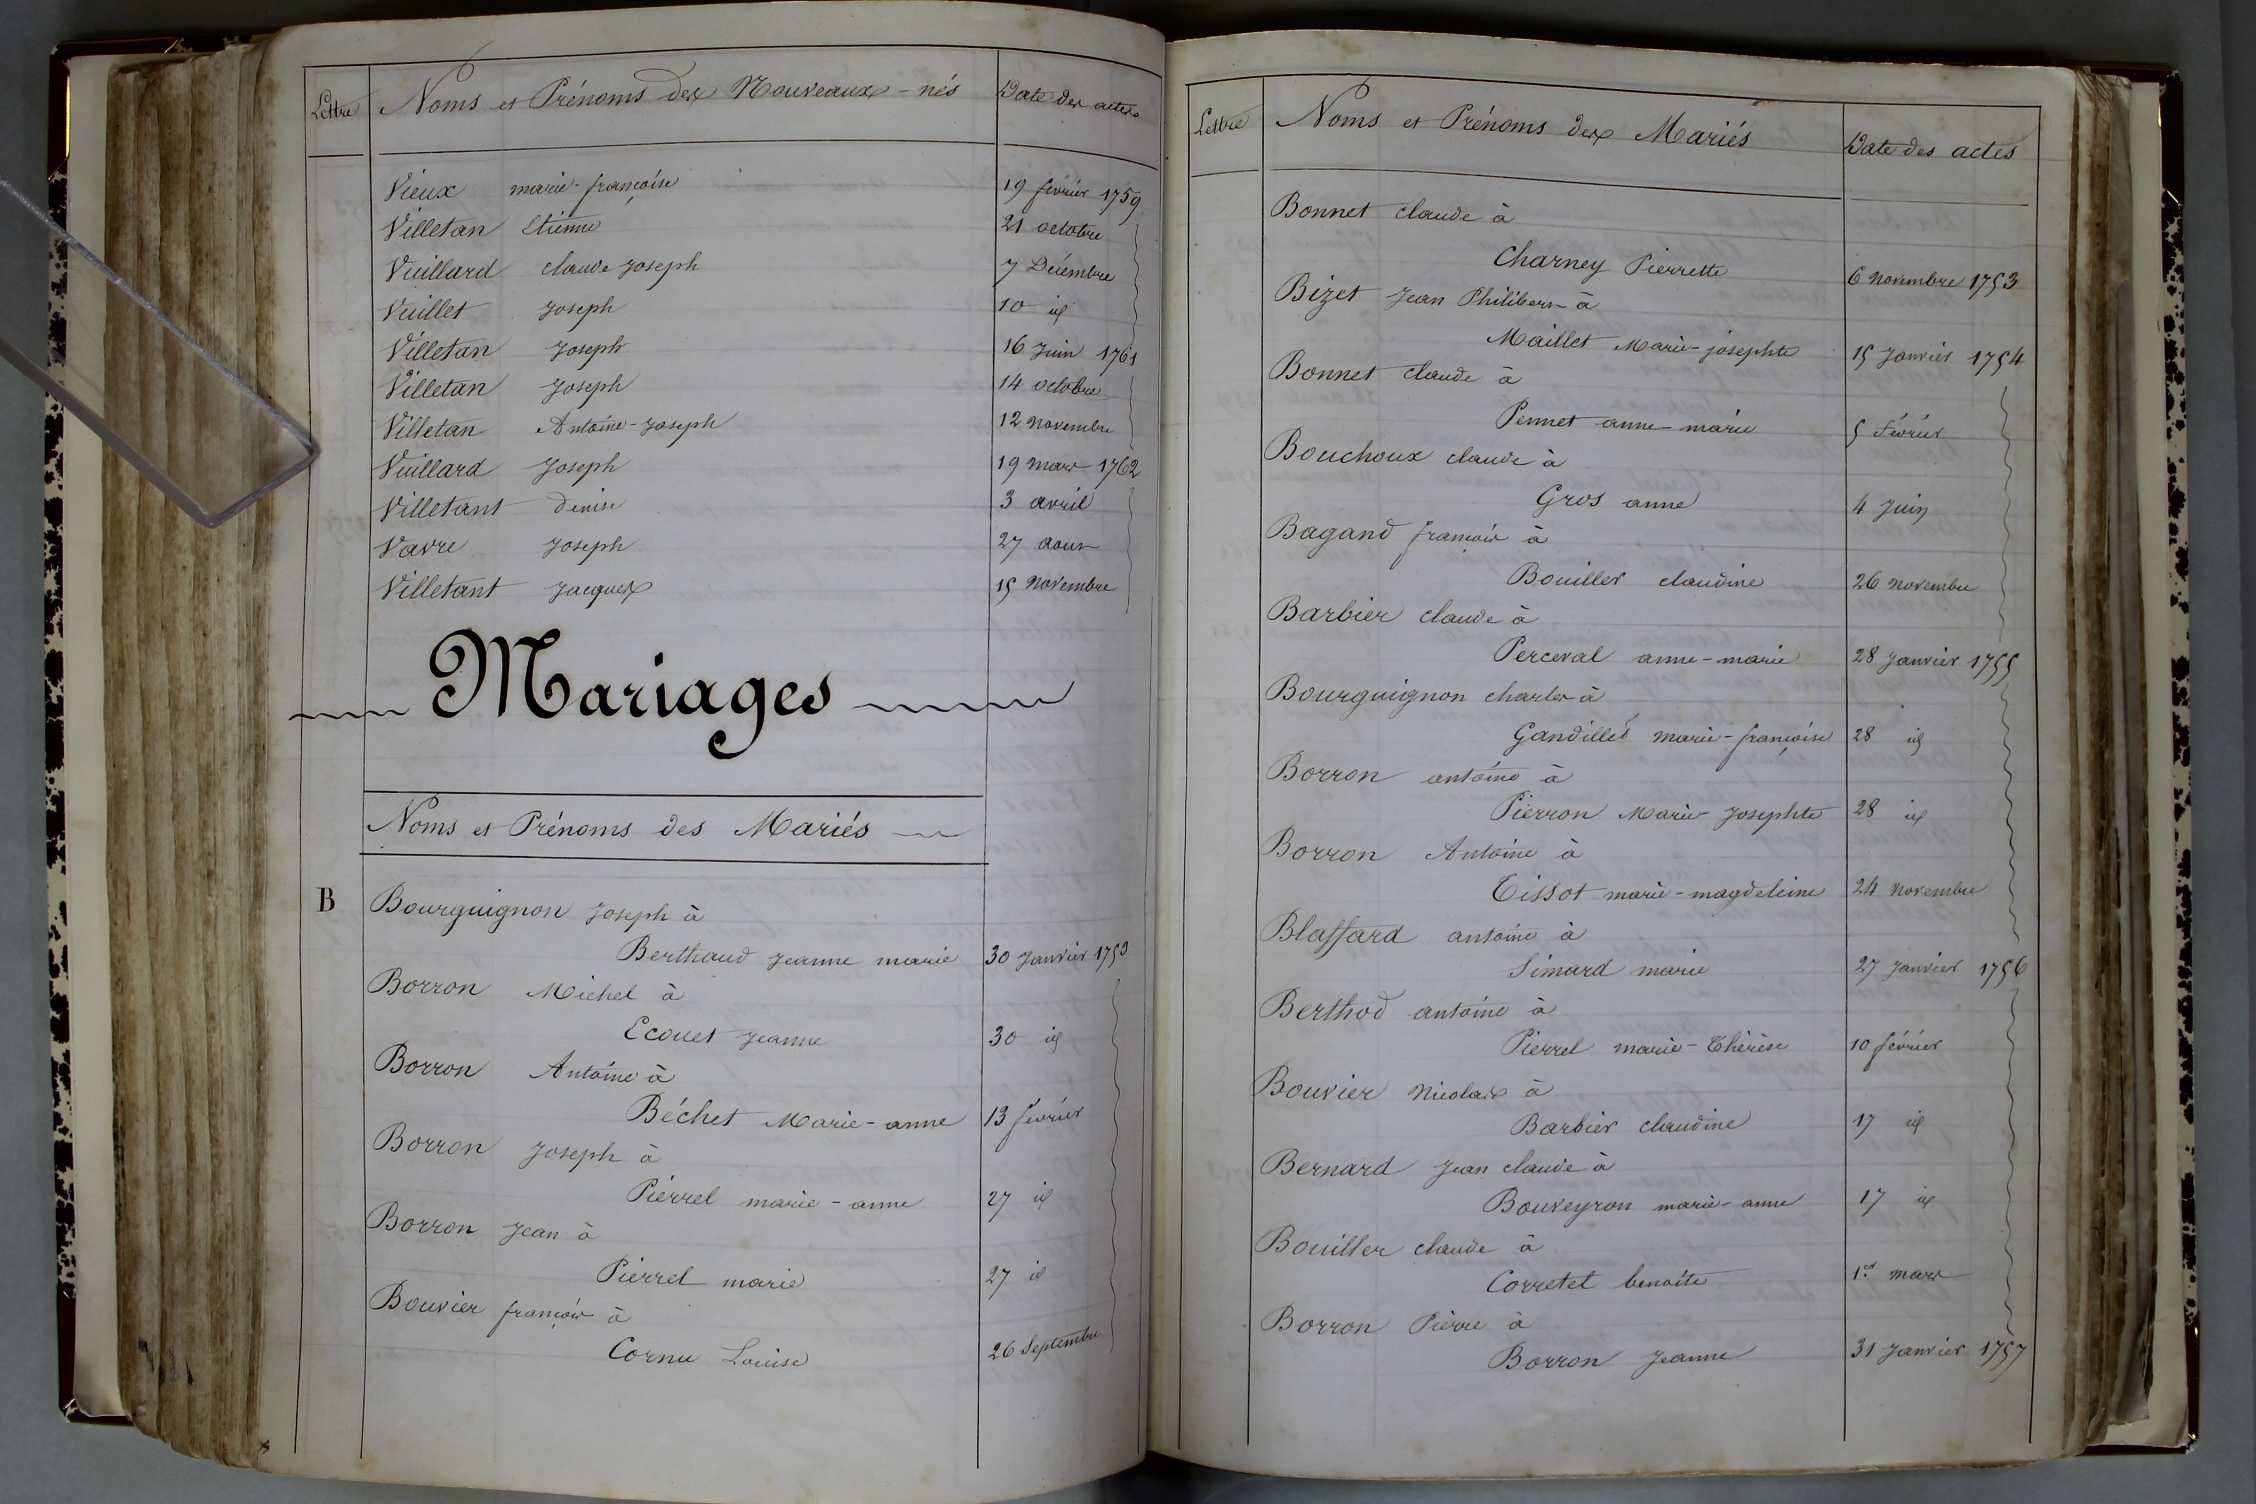 Lettre Noms et Prénoms des Nouveaux-nés Date des actes
Vieux marie-françoise 19 février 1759
Villetan Etienne 21 octobre
Vuillard claude joseph 7 Décembre
Vuillet joseph 10 id
Villetan joseph 16 juin 1761
Villetan joseph 14 octobre
Villetan Antoine-joseph 12 novembre
Vuillard joseph 19 mars 1762
Villetant denise 3 avril
Vavre joseph 27 aout
Villetant jacques 15 novembre
Mariages
Noms et Prénoms des Mariés
B Bourguignon joseph à
Berthaud jeanne marie 30 janvier 1753
Borron Michel à
Ecouet jeanne 30 id
Borron Antoine à
Béchet Marie-anne 13 février
Borron joseph à
Pierrel marie-anne 27 id
Borron jean à
Pierrel marie 27 id
Bouvier françois à
Cornu Louise 26 septembre
Lettre Noms et Prénoms des Mariés Date des actes
Bonnet claude à
Charney Pierrette 6 novembre 1753
Bizet jean Philibert à
Maillet Marie-josephte 15 janvier 1754
Bonnet claude à
Pennet anne-marie 5 février
Bouchoux claude à
Gros anne 4 juin
Bagand françois à
Bouiller claudine 26 novembre
Barbier claude à
Perceval anne-marie 28 janvier 1755
Bourguignon charles à
Gandillet marie-françoise 28 id
Borron antoine à
Pierron Marie-josephte 28 id
Borron Antoine à
Tissot marie-magdeleine 24 novembre
Blaffard antoine à
Simard marie 27 janvier 1756
Berthod antoine à
Pierrel marie-Thérèse 10 février
Bouvier nicolas à
Barbier claudine 17 id
Bernard jean claude à
Bouveyron marie-anne 17 id
Bouiller claude à
Corretet benoite 1er mars
Borron Pierre à
Borron jeanne 31 janvier 1757